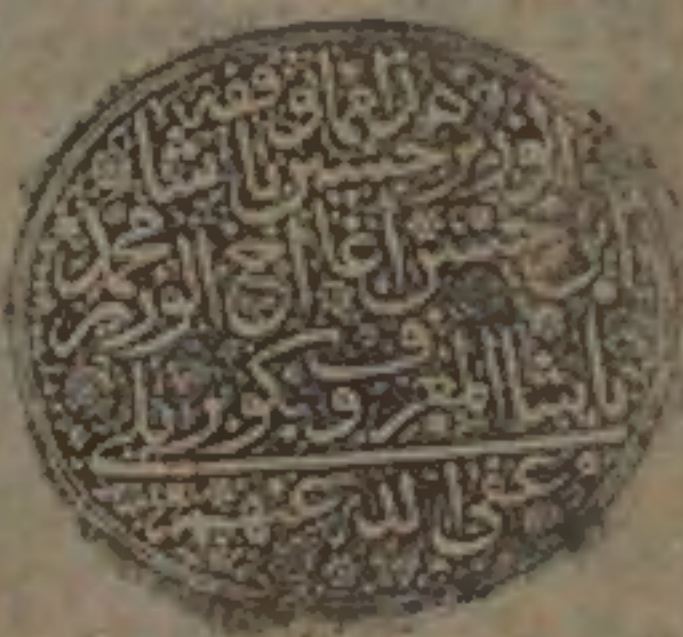 وقفه
الوزير حسين باشا
ابن حسن آغا اخ الوزير محمد
باشا المعروف بكوبريلي
عفى الله عنهم